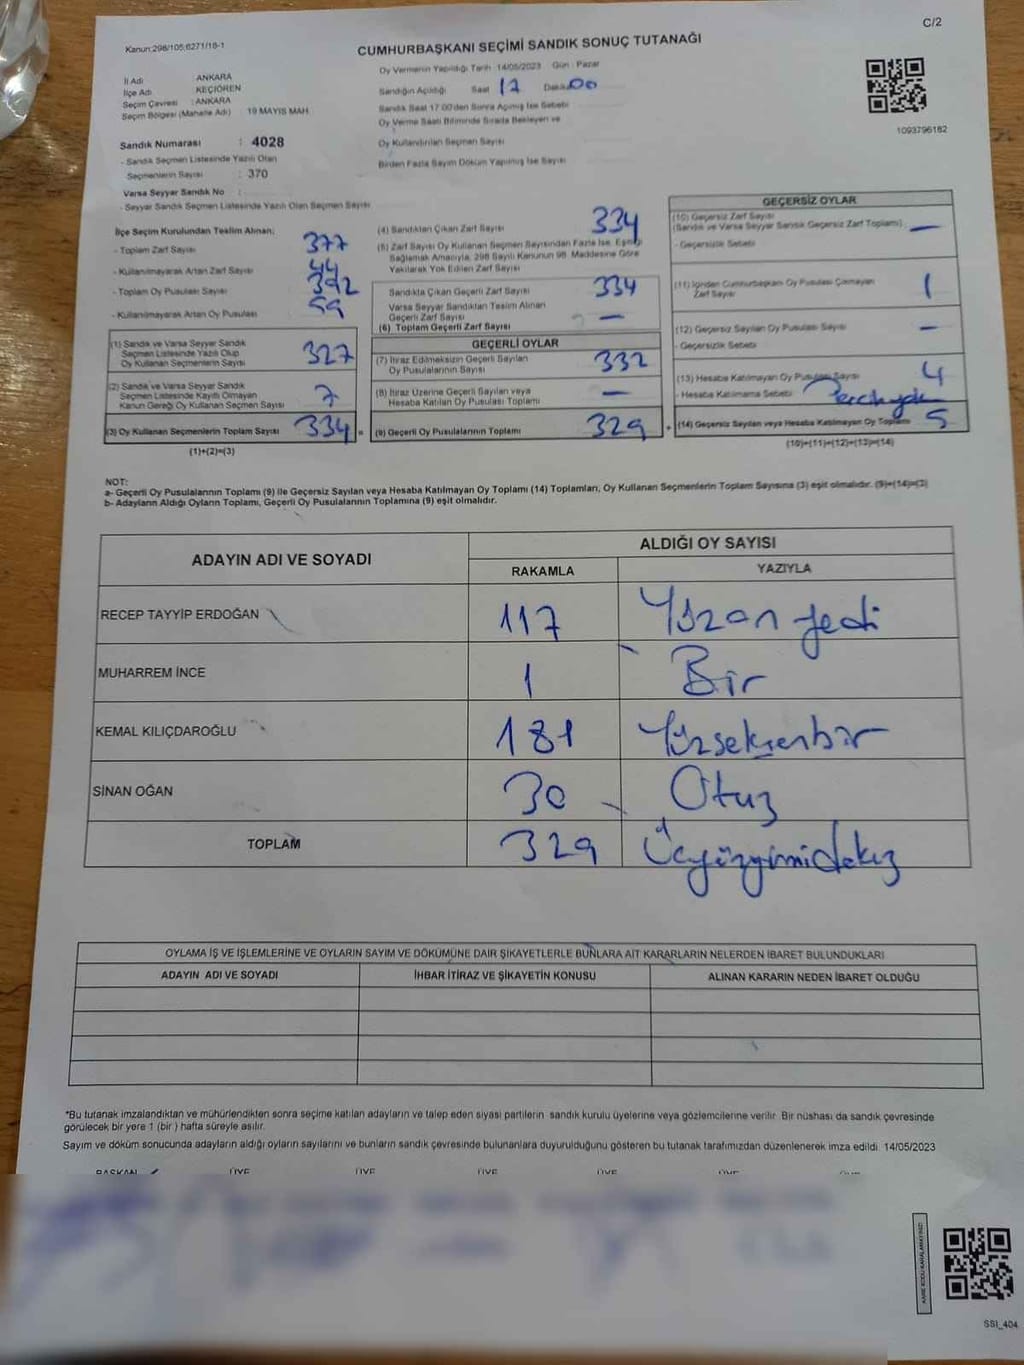 C/2
Kanun:298/105;6271/18-1
CUMHURBAŞKANI SEÇİMİ SANDIK SONUÇ TUTANAĞI
Oy Vermenin Yapıldığı Tarih 14/05/2023 Gün : Pazar
İl Adı ANKARA
İlçe Adı KEÇİÖREN
Seçim Çevresi : ANKARA
Seçim Bölgesi (Mahalle Adı) 19 MAYIS MAH.
Sandığın Açıldığı Saat 17 Dakika 00
Sandık Saat 17.00'den Sonra Açılmış İse Sebebi
Oy Verme Saati Bitiminde Sırada Bekleyen ve
Oy Kullandırılan Seçmen Sayısı
Birden Fazla Sayım Döküm Yapılmış İse Sayısı
1093796182
Sandık Numarası : 4028
- Sandık Seçmen Listesinde Yazılı Olan
Seçmenlerin Sayısı : 370
Varsa Seyyar Sandık No :
- Seyyar Sandık Seçmen Listesinde Yazılı Olan Seçmen Sayısı
İlçe Seçim Kurulundan Teslim Alınan;
- Toplam Zarf Sayısı 377
- Kullanılmayarak Artan Zarf Sayısı 44
- Toplam Oy Pusulası Sayısı 392
- Kullanılmayarak Artan Oy Pusulası 59
(1) Sandık ve Varsa Seyyar Sandık
Seçmen Listesinde Yazılı Olup
Oy Kullanan Seçmenlerin Sayısı 327
(2) Sandık ve Varsa Seyyar Sandık
Seçmen Listesinde Kayıtlı Olmayan
Kanun Gereği Oy Kullanan Seçmen Sayısı 7
(3) Oy Kullanan Seçmenlerin Toplam Sayısı 334 =
(1)+(2)=(3)
(4) Sandıktan Çıkan Zarf Sayısı 334
(5) Zarf Sayısı Oy Kullanan Seçmen Sayısından Fazla İse, Eşitliği
Sağlamak Amacıyla, 298 Sayılı Kanunun 98. Maddesine Göre
Yakılarak Yok Edilen Zarf Sayısı
Sandıkta Çıkan Geçerli Zarf Sayısı 334
Varsa Seyyar Sandıktan Teslim Alınan
Geçerli Zarf Sayısı —
(6) Toplam Geçerli Zarf Sayısı
GEÇERLİ OYLAR
(7) İtiraz Edilmeksizin Geçerli Sayılan
Oy Pusulalarının Sayısı 332
(8) İtiraz Üzerine Geçerli Sayılan veya
Hesaba Katılan Oy Pusulası Toplamı —
(9) Geçerli Oy Pusulalarının Toplamı 329 +
GEÇERSİZ OYLAR
(10) Geçersiz Zarf Sayısı
(Sandık ve Varsa Seyyar Sandık Geçersiz Zarf Toplamı) —
- Geçersizlik Sebebi
(11) İçinden Cumhurbaşkanı Oy Pusulası Çıkmayan
Zarf Sayısı 1
(12) Geçersiz Sayılan Oy Pusulası Sayısı —
- Geçersizlik Sebebi
(13) Hesaba Katılmayan Oy Pusulası Sayısı 4
- Hesaba Katılmama Sebebi
(14) Geçersiz Sayılan veya Hesaba Katılmayan Oy Toplamı 5
(10)+(11)+(12)+(13)=(14)
NOT:
a- Geçerli Oy Pusulalarının Toplamı (9) ile Geçersiz Sayılan veya Hesaba Katılmayan Oy Toplamı (14) Toplamları, Oy Kullanan Seçmenlerin Toplam Sayısına (3) eşit olmalıdır. (9)+(14)=(3)
b- Adayların Aldığı Oyların Toplamı, Geçerli Oy Pusulalarının Toplamına (9) eşit olmalıdır.
ADAYIN ADI VE SOYADI ALDIĞI OY SAYISI
RAKAMLA YAZIYLA
RECEP TAYYİP ERDOĞAN 117 Yüzonyedi
MUHARREM İNCE 1 Bir
KEMAL KILIÇDAROĞLU 181 Yüzseksenbir
SİNAN OĞAN 30 Otuz
TOPLAM 329 Üçyüzyirmidokuz
OYLAMA İŞ VE İŞLEMLERİNE VE OYLARIN SAYIM VE DÖKÜMÜNE DAİR ŞİKAYETLERLE BUNLARA AİT KARARLARIN NELERDEN İBARET BULUNDUKLARI
ADAYIN ADI VE SOYADI İHBAR İTİRAZ VE ŞİKAYETİN KONUSU ALINAN KARARIN NEDEN İBARET OLDUĞU
*Bu tutanak imzalandıktan ve mühürlendikten sonra seçime katılan adayların ve talep eden siyasi partilerin sandık kurulu üyelerine veya gözlemcilerine verilir. Bir nüshası da sandık çevresinde
görülecek bir yere 1 (bir) hafta süreyle asılır.
Sayım ve döküm sonucunda adayların aldığı oyların sayılarını ve bunların sandık çevresinde bulunanlara duyurulduğunu gösteren bu tutanak tarafımızdan düzenlenerek imza edildi. 14/05/2023
BAŞKAN ÜYE ÜYE ÜYE ÜYE ÜYE ÜYE
SSI_404